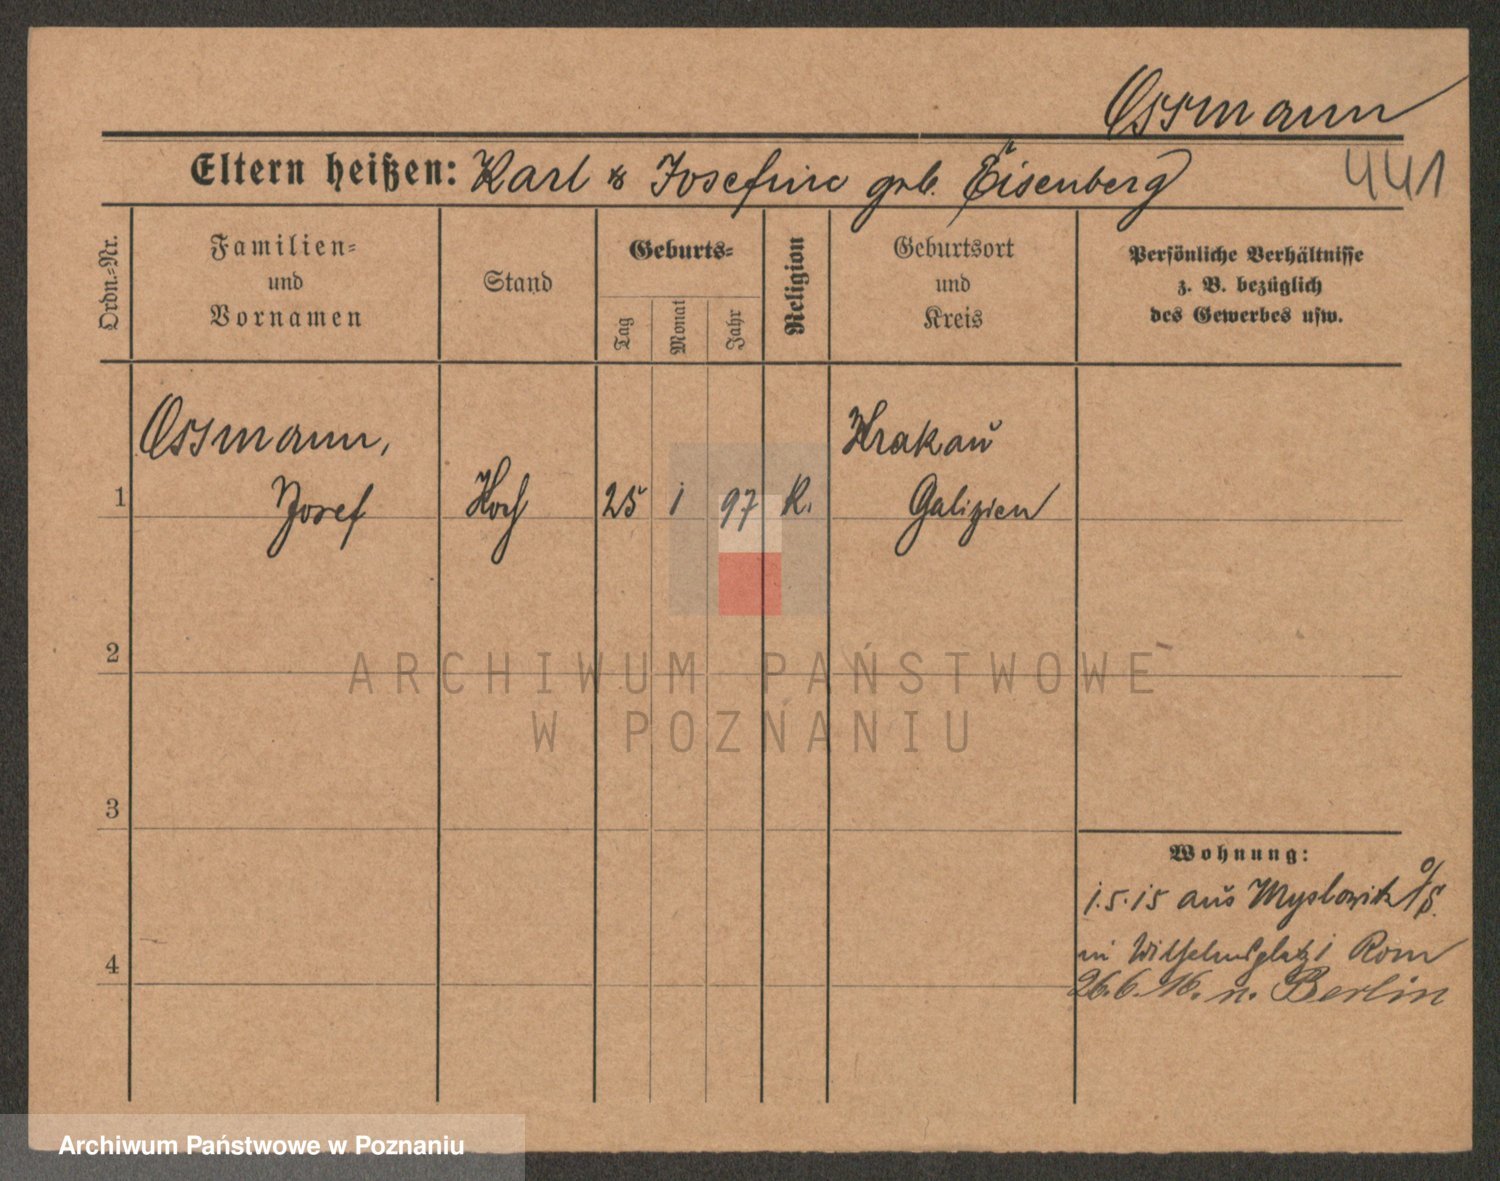 Ossmann
Eltern heißen: Karl & Josefine geb. Eisenberg
441
Ordn.=Nr.
Familien=
und
Vornamen
Stand
Geburts=
Tag
Monat
Jahr
Religion
Geburtsort
und
Kreis
Persönliche Verhältnisse
z. B. bezüglich
des Gewerbes usw.
Ossmann,
Krakau
1
Josef
Koch
25
1
97
K.
Galizien
2
ARCHIWUM PAŃSTWOWE
W POZNANIU
3
Wohnung:
1.5.15 aus Myslowitz O/S.
4
in Wilhelmsplatz 1
26.6.16. n. Berlin
Archiwum Państwowe w Poznaniu